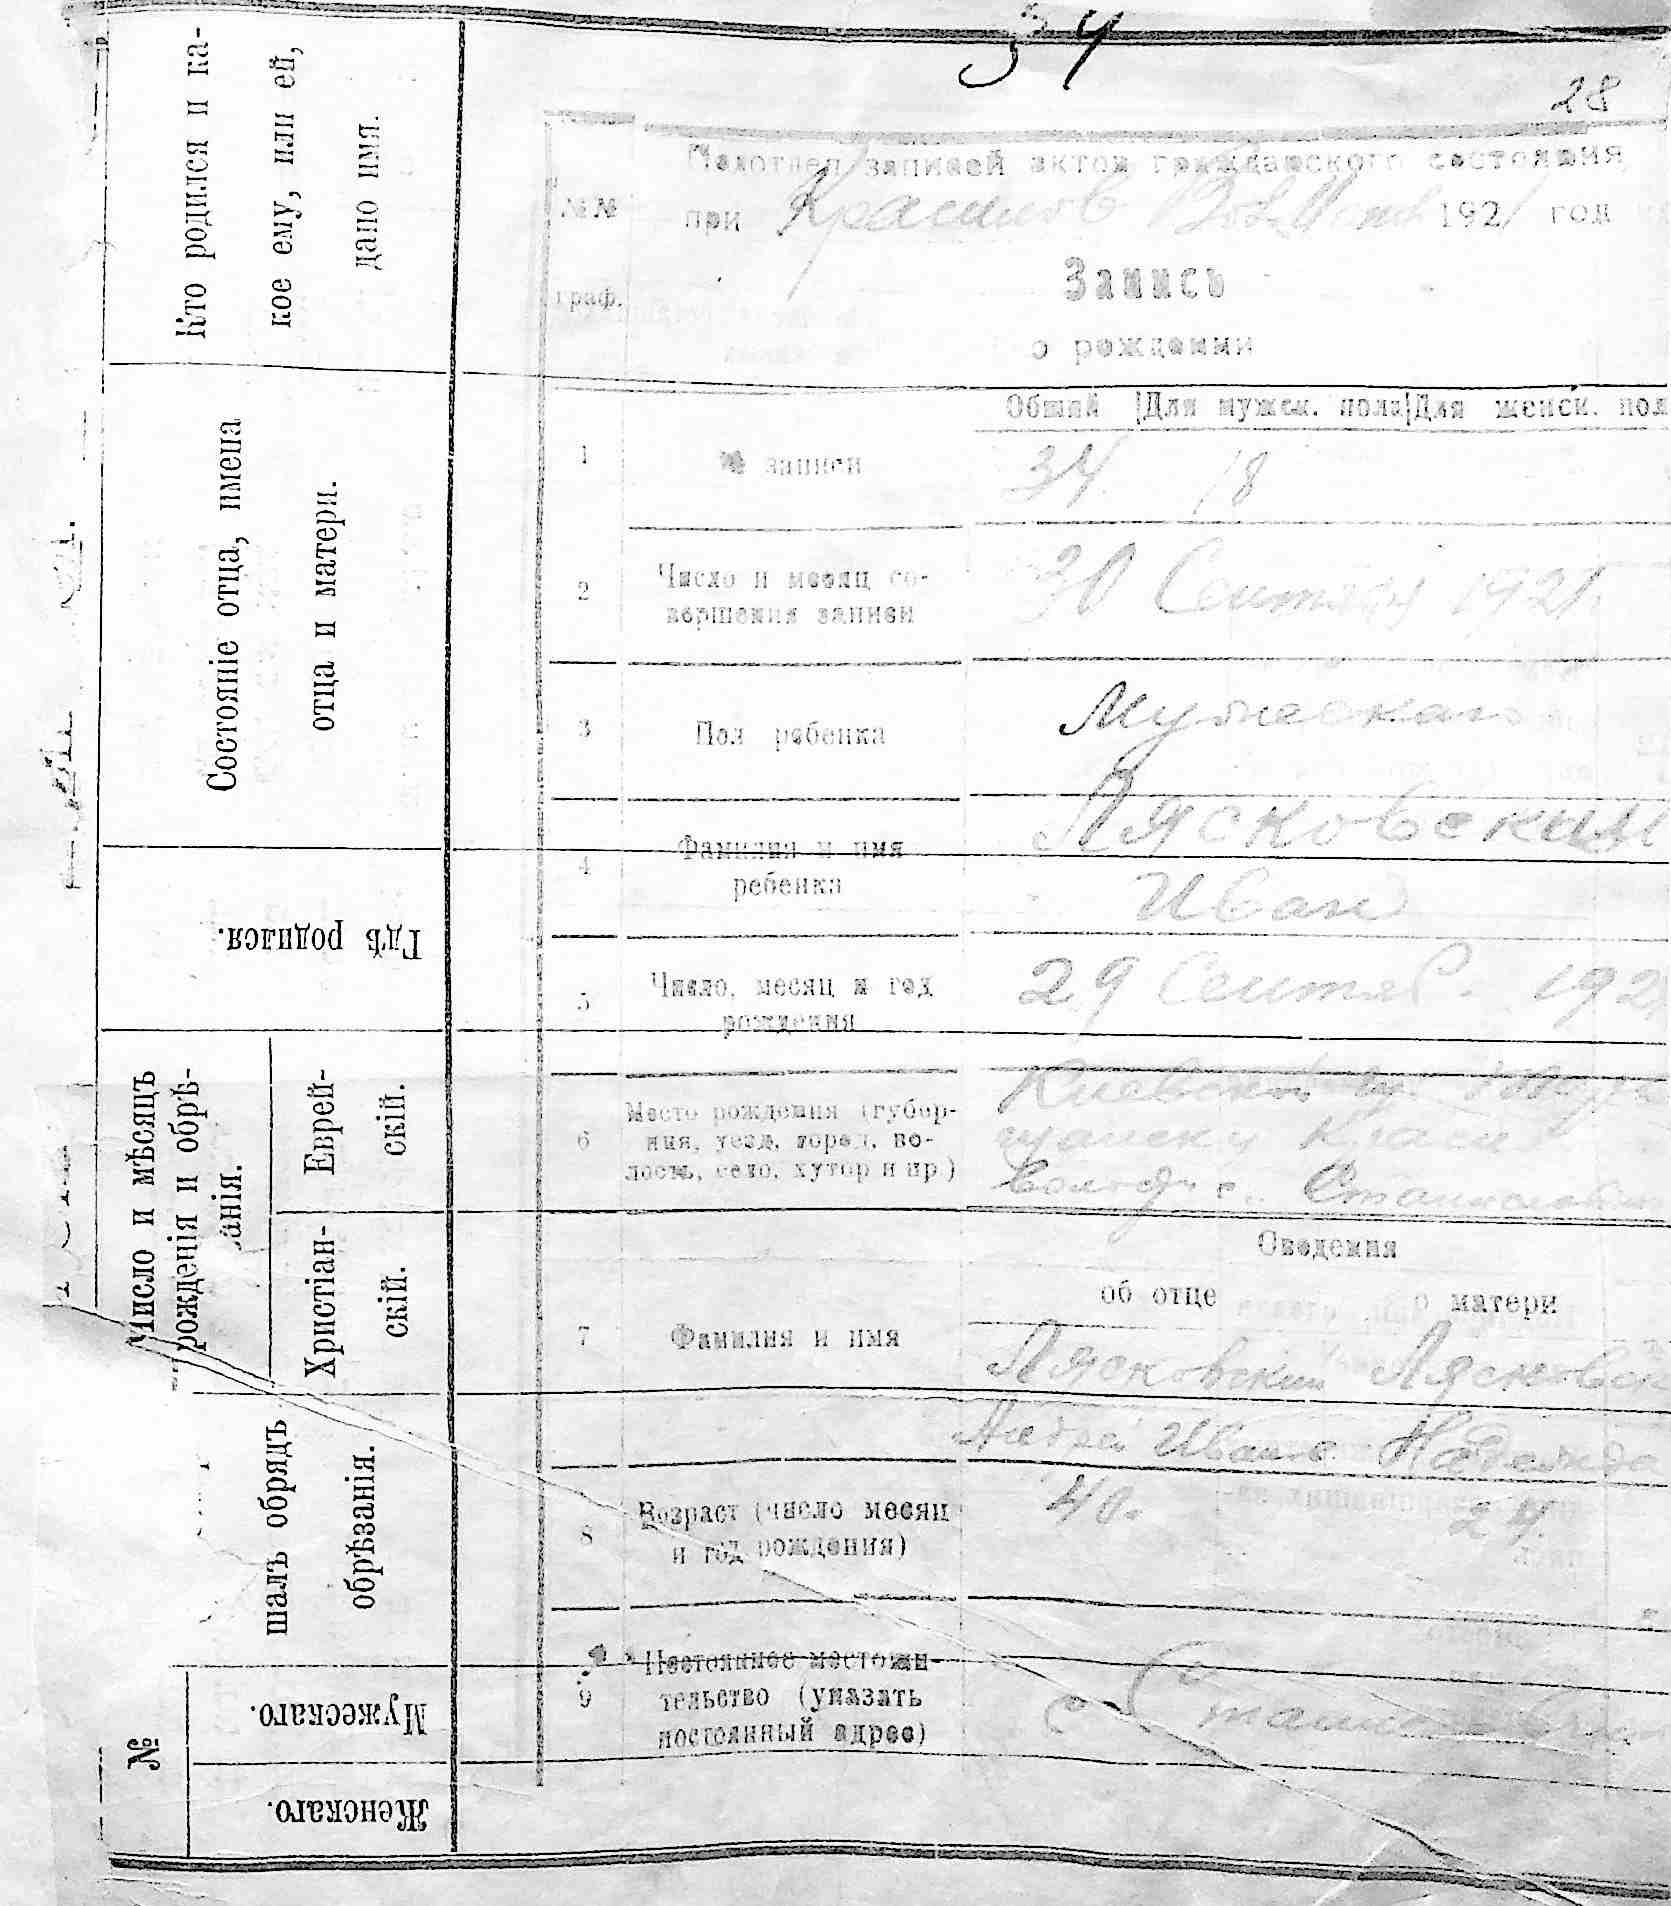 34
28
Кто родился и ка-
кое ему, или ей,
дано имя.
Состояніе отца, имена
отца и матери.
Гдѣ родился.
Число и мѣсяцъ
рожденія и обрѣ-
анія.
Еврей-
скій.
Христіан-
скій.
шалъ обрядъ
обрѣзанія.
№
Мужескаго.
Женскаго.
записей актов гражданского состояния
при 1921 год
№№
граф.
Запись
о рождении
Общий Для мужск. пола Для женск. пол
1 записи 34 18
2 Число и месяц со-
вершения записи
30 Сентября 1921
3 Пол ребенка Мужескаго
4 Фамилия и имя
ребенка
Лясковский
Иван
5 Число, месяц и год
рождения
29 Сентяб. 192
6 Место рождения (губер-
ния, уезд, город, во-
лость, село, хутор и пр.)
Киевской
Сведения
об отце о матери
7 Фамилия и имя
Лясковский Лясковск
Андрей Иванов Надежда
8 Возраст (число месяц
и год рождения)
40. 24.
9 Постоянное местожи-
тельство (указать
постоянный адрес)
с